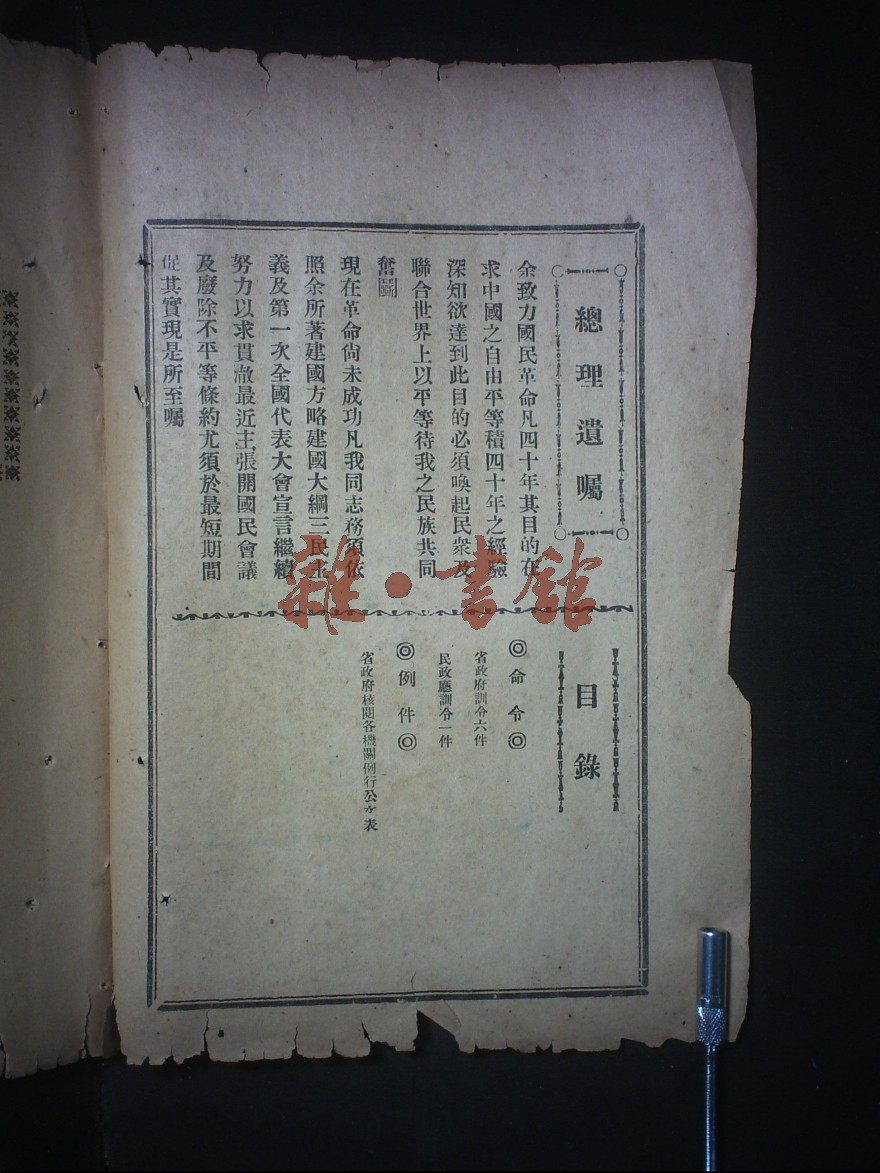 總理遺囑
余致力國民革命凡四十年其目的在
求中國之自由平等積四十年之經驗
深知欲達到此目的必須喚起民衆及
聯合世界上以平等待我之民族共同
奮鬭
現在革命尙未成功凡我同志務須依
照余所著建國方略建國大綱三民主
義及第一次全國代表大會宣言繼續
努力以求貫澈最近主張開國民會議
及廢除不平等條約尤須於最短期間
促其實現是所至囑
目錄
◎命令◎
省政府訓令六件
民政廳訓令一件
◎例件◎
省政府核閱各機關例行公文表
雜·書館